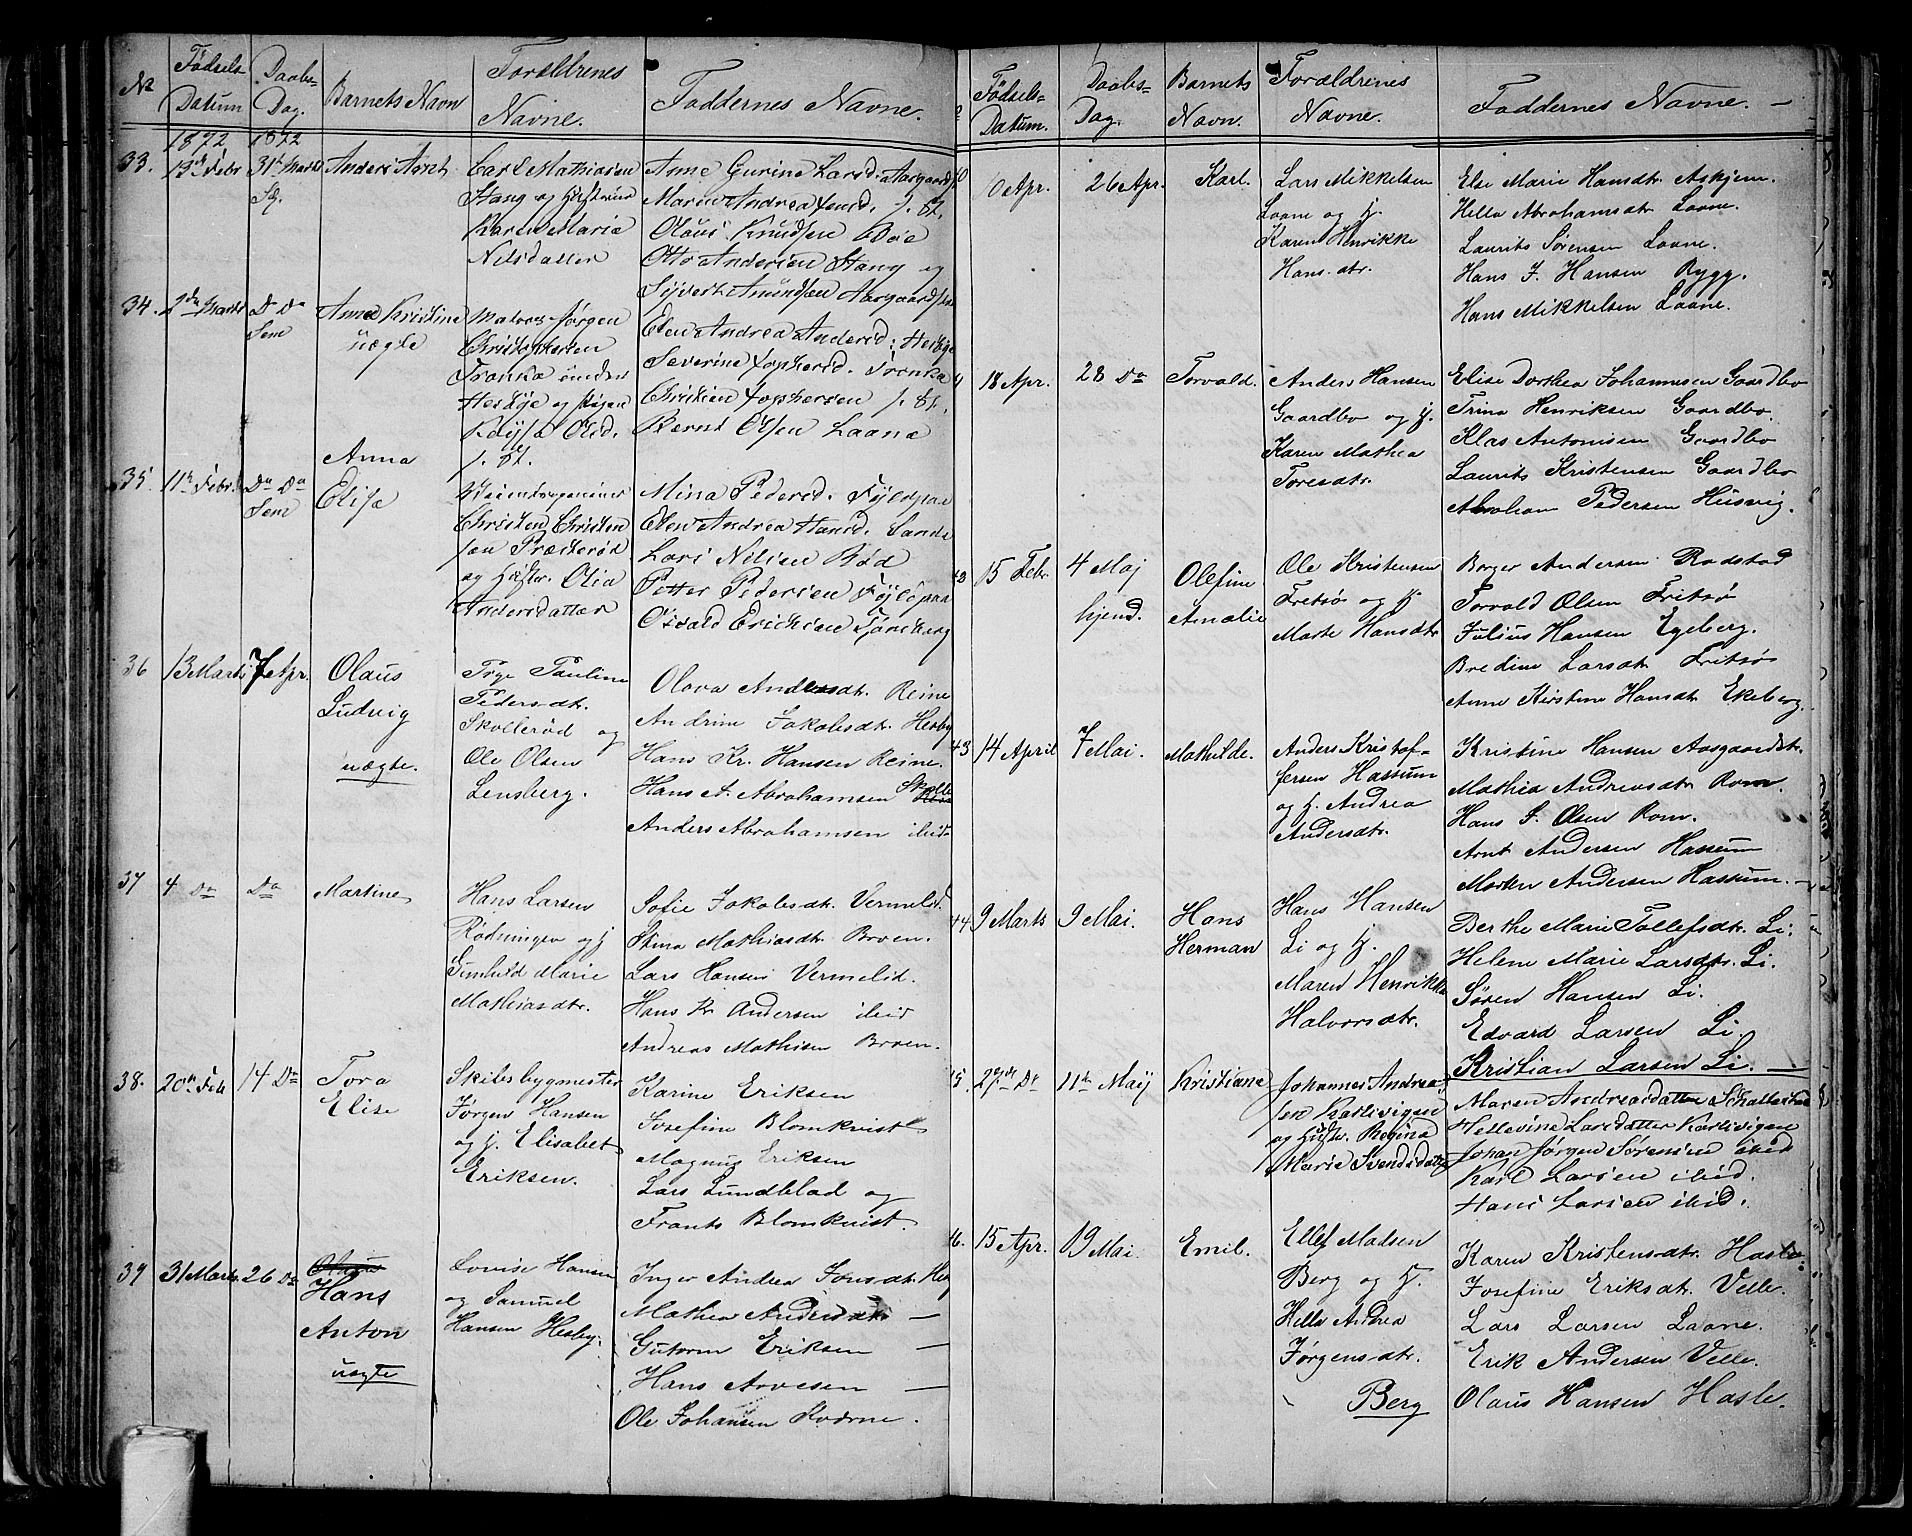 No
Fødsels-
Datum
Daabs-
Dag.
Barnets Navn
Forældrenes
Navne.
Faddernes Navne.
1872
1872
33.
13de Febr
31te Marts
Anders Arnt
Carl Mathiasen
Stang og Hustrue
Karen Maria
Nilsdatter
Anne Gurine Larsd. Aasgaard
Maren Andrea
Olaus Knudsen Bøe
Otto Andersen Stang og
Syvert Amundsen Aasgaard
34.
2den Marts
Do Do
Sem
Anna Kristine
uægte
Jørgen
Christophersen
Tranka
og Pigen
Olsd.
Elen Andrea Andersd:
Severine Tophersd. Tranka
Christien Tophersen
Bernt Olsen Laane
35.
11te Febr.
Do Do
Sem
Anna
Elise
Christen Christen
sen Præsterød
og Hustr. Olia
Andersdatter
Mina Pedersd. Fylspaa
Elen Andrea Hansd. Sande
Lars Nilsen Bød
Petter Pedersen Fylspaa
Osvald Ericksen Tønsberg
36
13 Marts
7 Apr.
Olaus
Ludvig
uægte.
Pige Pauline
Pedersdt.
Skollerød og
Ole Olsen
Lensberg.
Olava Andersdt. Reine
Andrine Jakobsdt. Hesby
Hans Kr. Hansen Reine.
Hans A. Abrahamsen Skolle
Anders Abrahamsen ibid
37
4 Do
Do
Martine
Hans Larsen
Rødningen og H
Gunhild Marie
Mathiasdtr.
Sofie Jakobsdtr. Vermelid.
Stina Mathiasdtr. Broen.
Lars Hansen Vermelid.
Hans Kr Andersen ibid
Andreas Mathisen Broen.
38.
20de Feb
14 Do
Tora
Elise
Skibsbygmester
Jørgen Hansen
og H. Elisabet
Eriksen.
Karine Eriksen
Josefine Blomkvist
Magnus Eriksen
Lars Lundblad og
Frants Blomkvist.
39
31 Marts
26 Do
Hans
Anton
uægte
Lovise Hansen
og Samuel
Hansen Hesby.
Inger Andrea Jonsdt. Hes
Mathea Andersdtr. —
Gutorm Eriksen —
Hans Arvesen —
Ole Johansen Kværne.
Fødsels-
Datum.
Daabs-
Dag.
Barnets
Navn.
Forældrenes
Navne.
Faddernes Navne. —
10 Apr.
26 Apr.
Karl.
Lars Mikkelsen
Laane og H.
Karen Henrikke
Hansdtr.
Else Marie Hansdtr Askjem.
Helle Abrahamsdtr Laane.
Laurits Sørensen Laane.
Hans J. Hansen Rygg.
Hans Mikkelsen Laane.
18 Apr.
28 Do
Torvald.
Anders Hansen
Gaardbo og H.
Karen Mathea
Toresdtr.
Elise Dorthea Johannesen Gaardbo
Trina Henriksen Gaardbo.
Klas Antonisen Gaardbo
Laurits Kristensen Gaardbo
Abraham Pedersen Husvig.
42
15 Febr.
4 Maj
hjemd.
Olefine
Amalie
Ole Kristensen
Fritsøe og H
Marte Hansdtr
Borger Andersen Rødstad
Torvald Olsen Fritsø
Julius Hansen Egeberg.
Bredine Larsdtr Fritsø
Anne Kirstine Hansdtr Ekeberg.
43
14 April
7 Mai.
Mathilde.
Anders Kristof-
fersen Hassum
og H. Andrea
Andersdtr.
Kristine Hansen Aasgaardstr.
Mathea Andreasdtr. Rom.
Hans J. Olsen Rom.
Arnt Andersen Hassum
Andersen Hassum.—
44
9 Marts
9 Mai.
Hans
Herman
Hans Hansen
Li og H.
Maren Henrikke
Halvorsdtr.
Berthe Marie Tollefsdtr. Li.
Helene Marie Larsdtr. Li.
Søren Hansen Li.
Edvard Larsen Li.
Kristian Larsen Li. —
45.
27de Do
11te Maij
Kristiane
Johannes Andrea
sen Karlsvigen
og Hustr. Regina
Marie Svendsdatter
Maren Andreasdatter
Hellevine Larsdatter Karlsvigen
Johan Jørgen Sørensen ibid
Karl Larsen ibid.
Hans Larsen ibid.
46.
15 Apr.
19 Mai.
Emil.
Ellef Madsen
Berg og H.
Helle Andrea
Jørgensdtr.
Berg
Karen Kristensdtr. Hasle.
Josefine Eriksdtr. Velle.
Lars Larsen Laane.
Erik Andersen Velle.
Olaus Hansen Hasle.